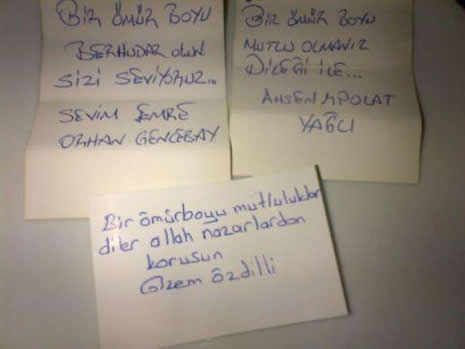 BİR ÖMÜR BOYU
BERHUDAR OLUN
SİZİ SEVİYORUZ...
SEVİM EMRE
ORHAN GENCEBAY
BİR ÖMÜR BOYU
MUTLU OLMANIZ
DİLEĞİ İLE...
AHSEN POLAT
YAĞCI
Bir ömürboyu mutluluklar
diler allah nazarlardan
korusun
Gizem Özdilli